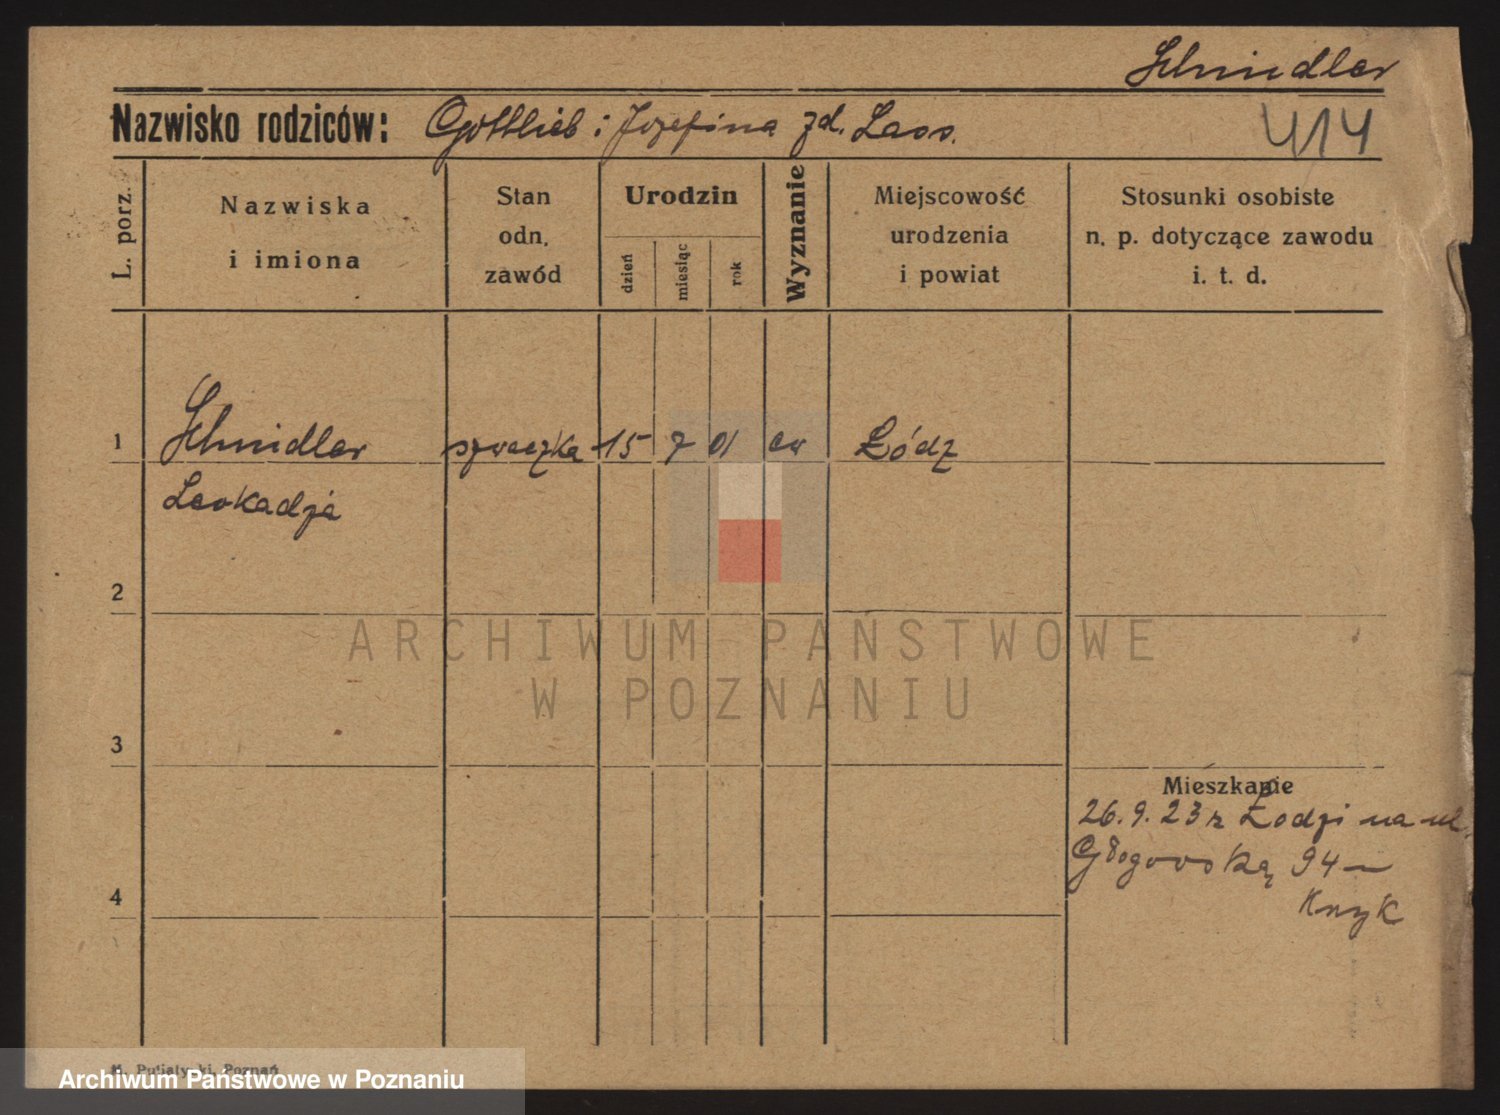 Schmidler
Nazwisko rodziców: Gottlieb i Jozefina zd. Laos.
414
L. porz.
Nazwiska
i imiona
Stan
odn.
zawód
Urodzin
dzień
miesiąc
rok
Wyznanie
Miejscowość
urodzenia
i powiat
Stosunki osobiste
n. p. dotyczące zawodu
i. t. d.
1 Schmidler szwaczka 15 7 01 ew Łódź
Leokadja
2
ARCHIWUM PAŃSTWOWE
W POZNANIU
3
Mieszkanie
26. 9. 23 z Łodzi na ul.
Głogowską 94 —
4
Archiwum Państwowe w Poznaniu